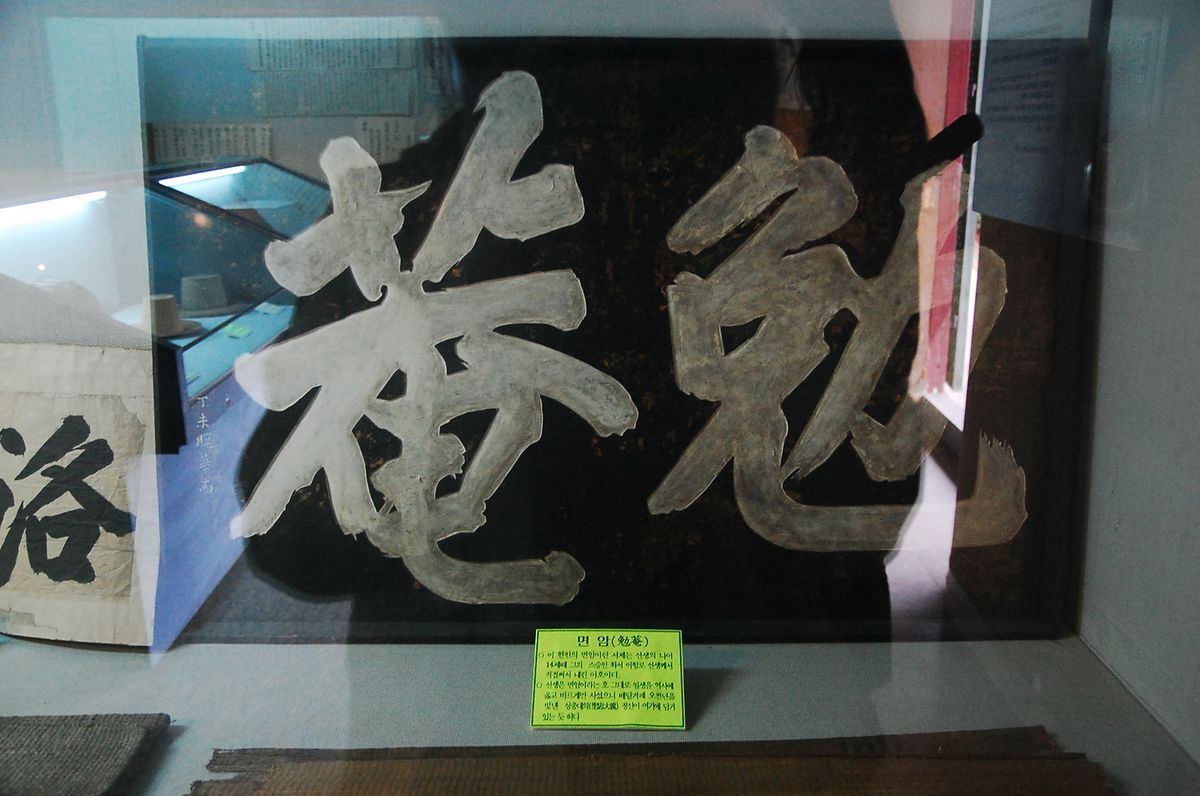 勉菴
丁未 華西
洛
면 암(勉菴)
○ 이 현판의 면암이란 서체는 선생의 나이
14세때 그의 스승인 화서 이항로 선생께서
직접써서 내린 아호이다.
○ 선생은 면암이라는 호 그대로 일생을 역사에
옳고 바르게만 사셨으니 배달겨레 오천년을
빛낸 정신이 여기에 담겨
있는 듯 하다